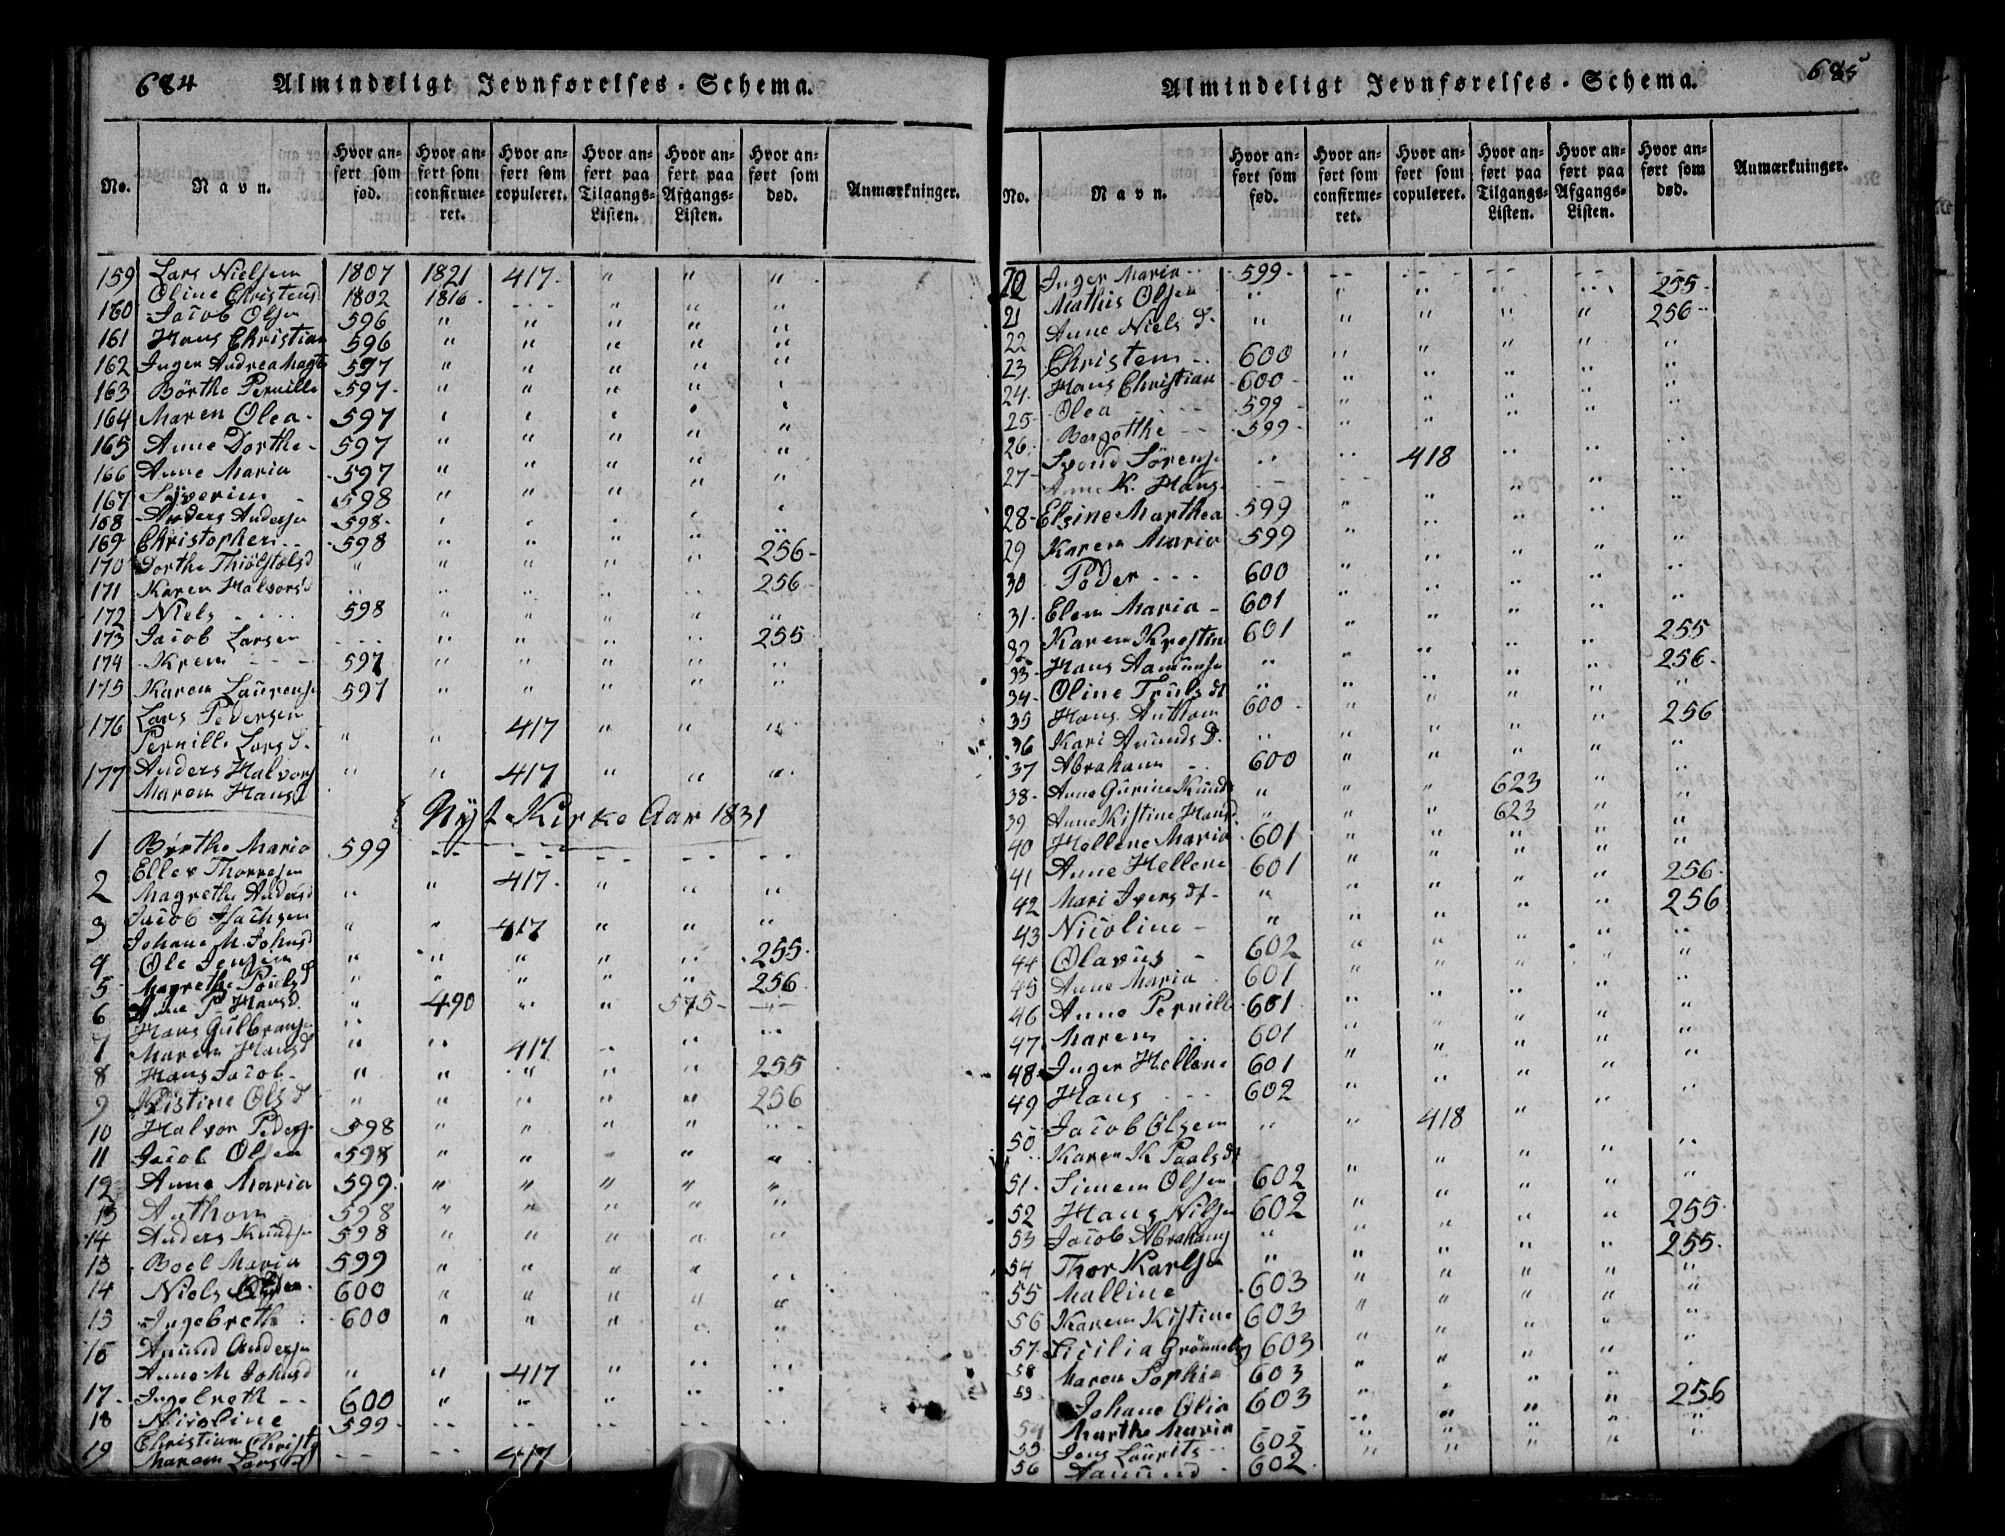 684 Almindeligt Jevnførelses-Schema.
No. Navn. Hvor anført som fød. Hvor anført som confirmeret. Hvor anført som copuleret. Hvor anført paa Tilgangs-Listen. Hvor anført paa Afgangs-Listen. Hvor anført som død. Anmærkninger.
159 Lars Nielsen 1807 1821 417 " " "
Oline Christensd 1802 1816
160 Jacob Olsen 596 " " " " "
161 Hans Christian 596 " " " " "
162 Inger Andrea Magt 597 " " " " "
163 Börthe Pernille 597 " " " " "
164 Maren Olea 597 " " " " "
165 Anne Dorthe 597 " " " " "
166 Anne Maria 597 " " " " "
167 Syverin 598 " " " " "
168 Anders Andersn 598 " " " " "
169 Christopher 598 " " " "
170 Dorthe Thiöstolsd " " " " " 256
171 Karen Halvorsd " " " " 256
172 Niels 598 " " " " "
173 Jacob Larsen " " " " 255
174 Kren 597 " " " " "
175 Karen Laurense 597 " " " " "
176 Lars Pedersen
Pernille Larsd. " " 417 " " "
177 Anders Halvors " " 417 " " "
Maren Hansd
Nÿt Kirke Aar 1831
1 Börthe Maria 599
2 Ellev Thorresen
Magrethe Andersd " " 417 " " "
3 Jacob Isachsen
Johane M. Johnsd " " 417 " " "
4 Ole Jensen " " " " " 255
5 Magrethe Poulsd " " " " " 256
6 Anne P. Hansd. " 490 " " 575
7 Hans Gulbransn
Maren Hansd " " 417 " "
8 Hans Jacob " " " " " 255
9 Kistine Olsd " " " " " 256
10 Halvor Peders 598 " " " " "
11 Jacob Olsen 598 " " " " "
12 Anne Maria 599 " " " " "
13 Anthon 598 " " " " "
14 Anders Knudsn 598 " " " " "
13 Boel Maria 599 " " " " "
14 Niels 600 " " " " "
15 Ingebreth 600 " " " " "
16 Amund Andersn
Anne M Johnsd " " 417 " " "
17 Ingebreth 600 " " " " "
18 Nicoline 599
19 Christian Christs
Maren Larsd 417
685 Almindeligt Jevnførelses-Schema.
No. Navn. Hvor anført som fød. Hvor anført som confirmeret. Hvor anført som copuleret. Hvor anført paa Tilgangs-Listen. Hvor anført paa Afgangs-Listen. Hvor anført som død. Anmærkninger.
20 Inger Maria 599
21 Mathis Olsen " " " " " 255
22 Anne Niels d. " " " " " 256
23 Christen 600 " " " " "
24 Hans Christian 600 " " " " "
25 Olea 599 " " " " "
26 Bergötthe 599 " " " " "
27 Svend Sörensn " " 418 " " "
Anne K. Hans
28 Elsine Marthea 599 " " " " "
29 Karen Maria 599 " " " " "
30 Peder 600 " " " " "
31 Elen Maria 601 " " " " "
32 Karen Kristin 601 " " " " "
33 Hans Aamunsn " " " " " 255
34 Oline Truls dt " " " " " 256
35 Hans Anthon 600 " " " " "
36 Kari Amunds D. " " " " " 256
37 Abraham 600 " " " " "
38 Anne Gurine Knuds " " " 623 " "
39 Anne Kistine Hansd. " " " 623 " "
40 Hellene Maria 601 " " " " "
41 Anne Hellene 601 " " " " "
42 Mari Ivers dt " " " " " 256
43 Nicoline " " " " " 256
44 Olavus 602 " " " " "
45 Anne Maria 601 " " " " "
46 Anne Pernille 601 " " " " "
47 Maren 601 " " " " "
48 Inger Hellene 601 " " " " "
49 Hans 602 " " " " "
50 Jacob Olsen " " 418 " " "
Karen K Paals dt
51 Simen Olsen 602 " " " " "
52 Hans Nilsn 602 " " " " "
53 Jacob Abrahams " " " " " 255
54 Thor Karlsn " " " " " 255
55 Malline 603 " " " " "
56 Karen Kistine 603 " " " " "
57 Sicilia Grönneby 603 " " " " "
58 Maren Sophie 603 " " " " "
59 Johane Olia 603 " " " " "
54 Marthe Maria " " " " 256
55 Jens Laurits 602 " " " " "
56 Aamund 602